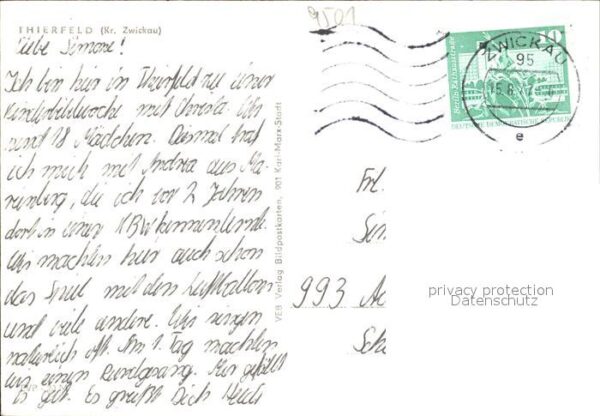 9501
THIERFELD (Kr. Zwickau)
Liebe Simone!
Ich bin hier in Thierfeld zu einer
Kinderbibelwoche mit Christa. Wir
sind 18 Mädchen. Diesmal traf
ich mich mit Andrea aus Ma-
rienberg, die ich vor 2 Jahren
dort in einer KBW kennenlernte.
Wir machten hier auch schon
das Spiel mit den Luftballons
und viele andere. Wir singen
natürlich oft. Am 1. Tag machten
wir einen Rundgang. Mir gefällt
es gut. Es grüßt Dich
VEB Verlag Bildpostkarten, 901 Karl-Marx-Stadt
ZWICKAU
95
15.8.
e
10
Berlin, Rathausstraße
DEUTSCHE DEMOKRATISCHE REPUBLIK
Frl.
Sim
993
Sch
privacy protection
Datenschutz